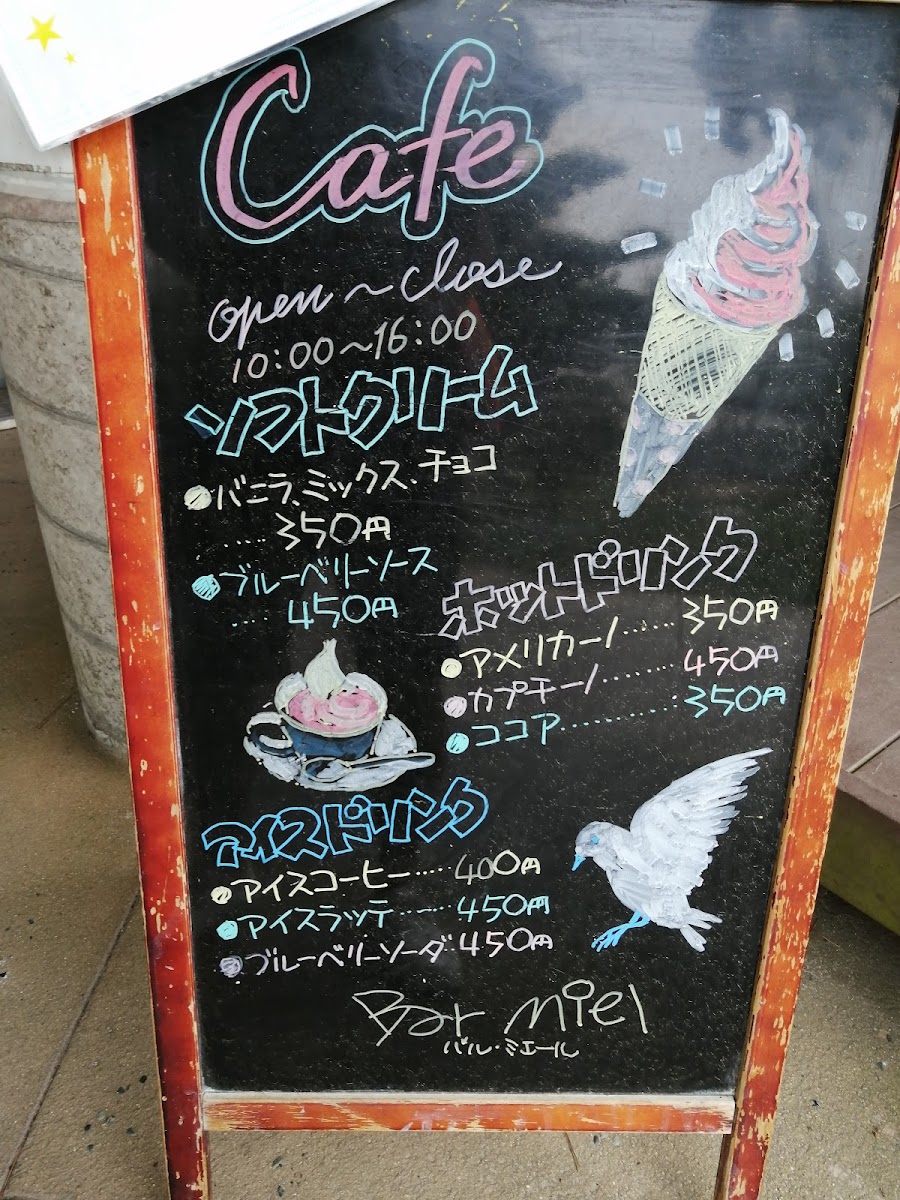 Cafe
open～close
10:00～16:00
ソフトクリーム
●バニラ、ミックス、チョコ
‥‥‥350円
●ブルーベリーソース
‥‥450円
ホットドリンク
●アメリカーノ‥‥‥350円
●カプチーノ‥‥‥‥450円
●ココア‥‥‥‥‥‥350円
アイスドリンク
●アイスコーヒー‥‥400円
●アイスラッテ‥‥‥450円
●ブルーベリーソーダ‥450円
Bar miel
バル・ミエール